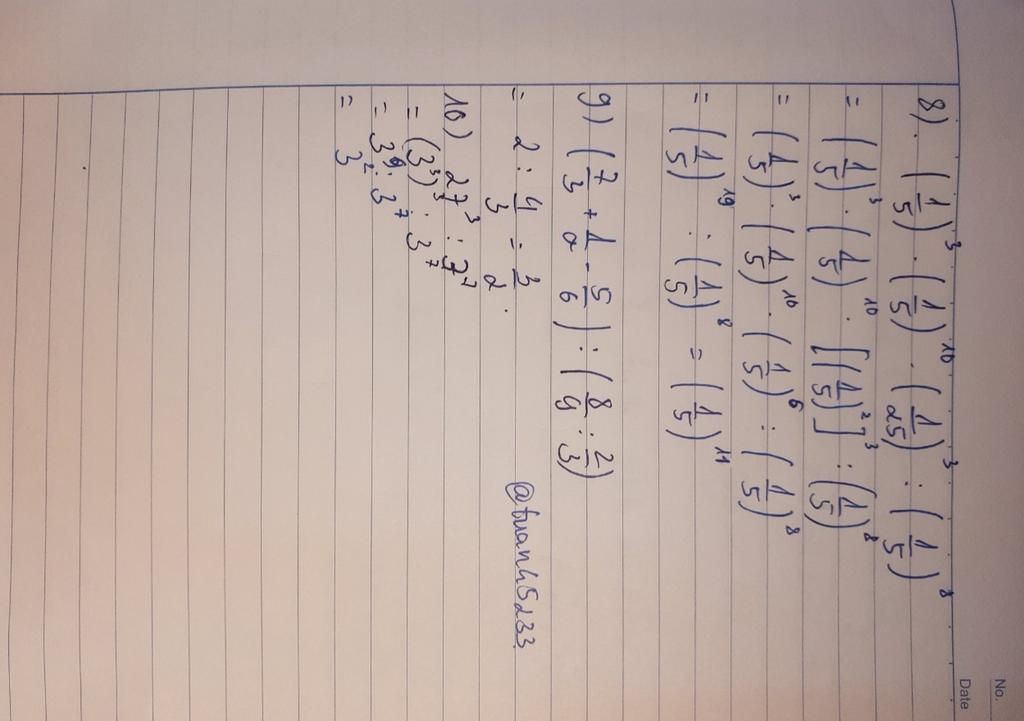 No.
Date
8). (1/5)³ . (1/5)¹⁰ . (1/25)³ : (1/5)⁸
= (1/5)³ . (1/5)¹⁰ . [(1/5)²]³ : (1/5)⁸
= (1/5)³ . (1/5)¹⁰ . (1/5)⁶ : (1/5)⁸
= (1/5)¹⁹ : (1/5)⁸ = (1/5)¹¹
9) (7/3 + 1/2 - 5/6) : (8/9 : 2/3)
= 2 : 4/3 = 3/2.
@tuan45233
10) 27³ : 3⁷
= (3³)³ : 3⁷
= 3⁹ : 3⁷
= 3²